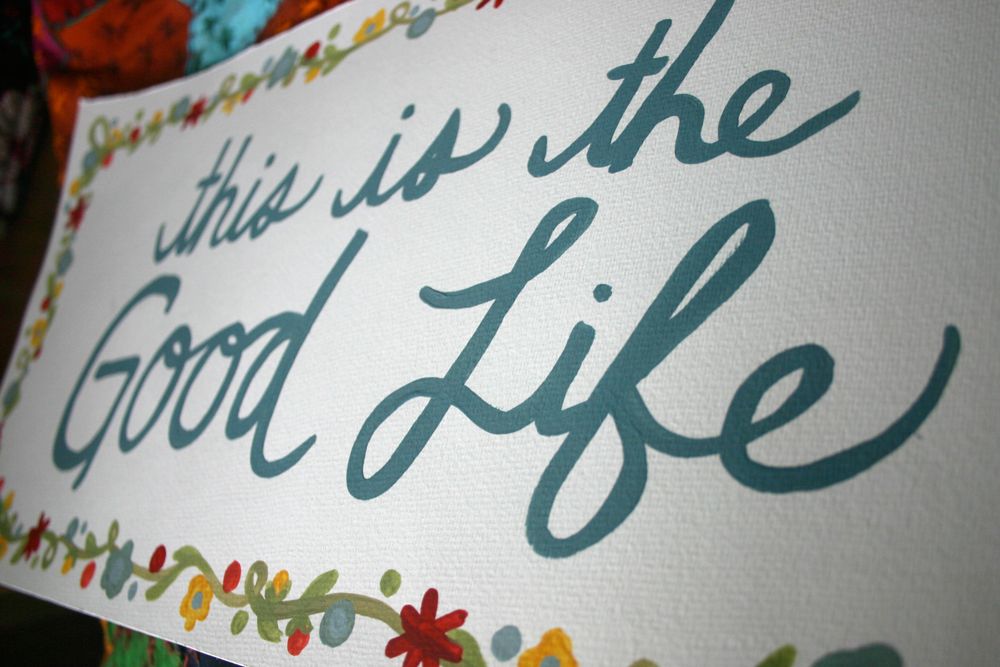 this is the
Good Life